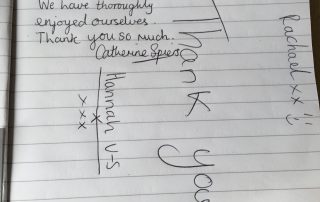 We have thoroughly
enjoyed ourselves.
Thank you so much.
Catherine Spiers
Thank you
Hannah V-S
x x x x
Rachael xx :)